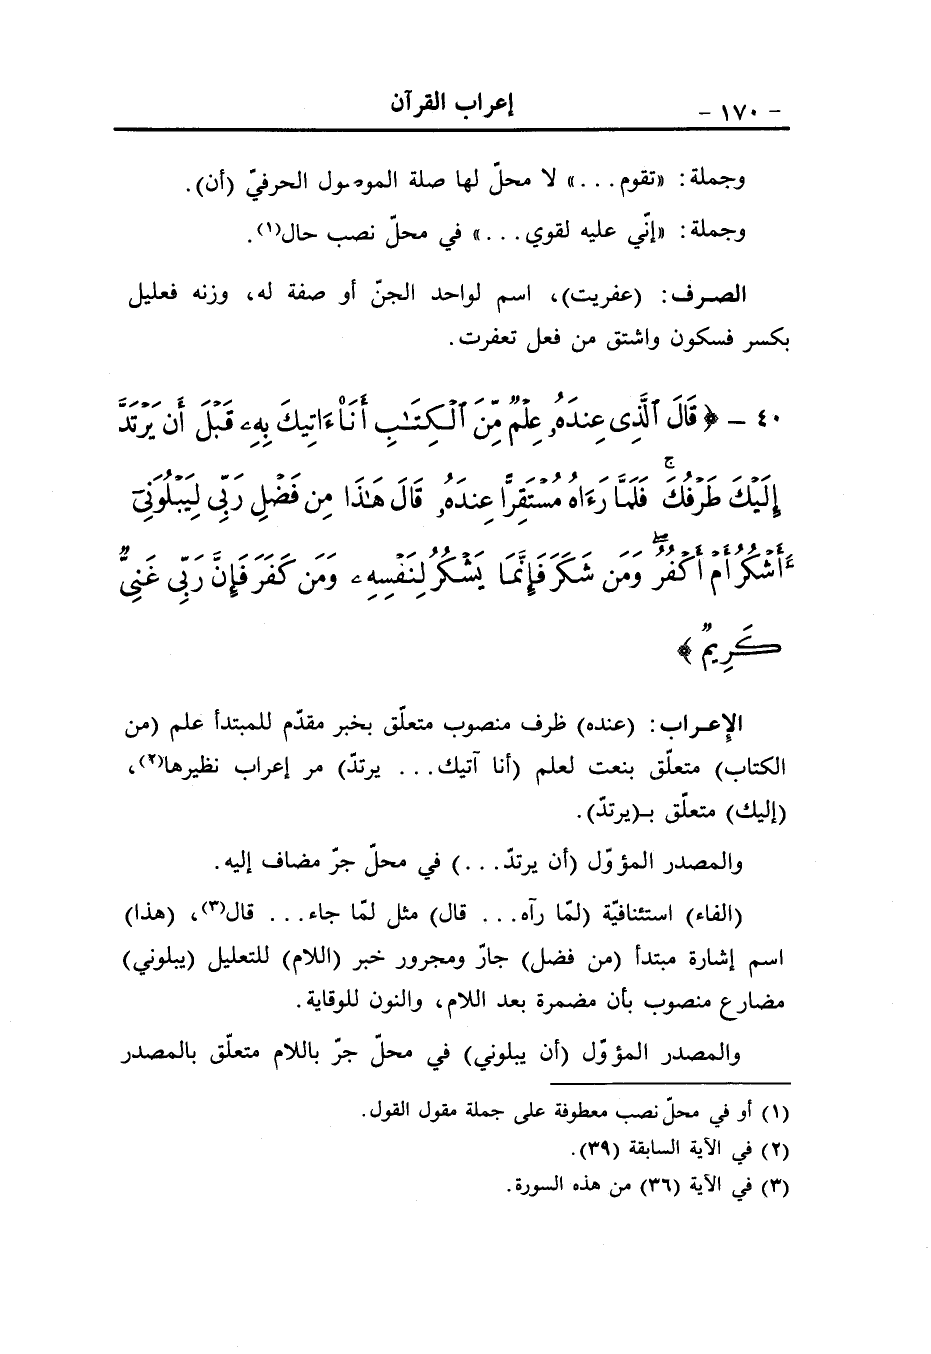 - ١٧٠ - إعراب القرآن
وجملة: «تقوم...» لا محلّ لها صلة الموصول الحرفيّ (أن).
وجملة: «إنّي عليه لقوي...» في محلّ نصب حال(١).
الصرف: (عفريت)، اسم لواحد الجنّ أو صفة له، وزنه فعليل
بكسر فسكون واشتق من فعل تعفرت.
٤٠ - ﴿قَالَ ٱلَّذِى عِندَهُۥ عِلْمٌ مِّنَ ٱلْكِتَـٰبِ أَنَا۠ ءَاتِيكَ بِهِۦ قَبْلَ أَن يَرْتَدَّ
إِلَيْكَ طَرْفُكَ ۚ فَلَمَّا رَءَاهُ مُسْتَقِرًّا عِندَهُۥ قَالَ هَـٰذَا مِن فَضْلِ رَبِّى لِيَبْلُوَنِىٓ
ءَأَشْكُرُ أَمْ أَكْفُرُ ۖ وَمَن شَكَرَ فَإِنَّمَا يَشْكُرُ لِنَفْسِهِۦ وَمَن كَفَرَ فَإِنَّ رَبِّى غَنِىٌّ
كَرِيمٌ﴾
الإعراب: (عنده) ظرف منصوب متعلّق بخبر مقدّم للمبتدأ علم (من
الكتاب) متعلّق بنعت لعلم (أنا آتيك... يرتدّ) مر إعراب نظيرها(٢)،
(إليك) متعلّق بـ(يرتدّ).
والمصدر المؤوّل (أن يرتدّ...) في محلّ جرّ مضاف إليه.
(الفاء) استئنافيّة (لمّا رآه... قال) مثل لمّا جاء... قال(٣)، (هذا)
اسم إشارة مبتدأ (من فضل) جارّ ومجرور خبر (اللام) للتعليل (يبلوني)
مضارع منصوب بأن مضمرة بعد اللام، والنون للوقاية.
والمصدر المؤوّل (أن يبلوني) في محلّ جرّ باللام متعلّق بالمصدر
(١) أو في محلّ نصب معطوفة على جملة مقول القول.
(٢) في الآية السابقة (٣٩).
(٣) في الآية (٣٦) من هذه السورة.